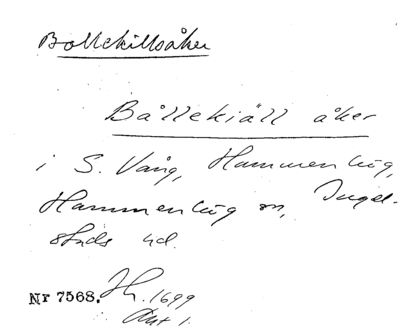 Bollekillsåker
Bållekiäll åker
i S. Vång, Hammenhög,
Hammenhög sn, Ingel-
stads hd.
Nr 7568. Jh. 1699
Akt 1.